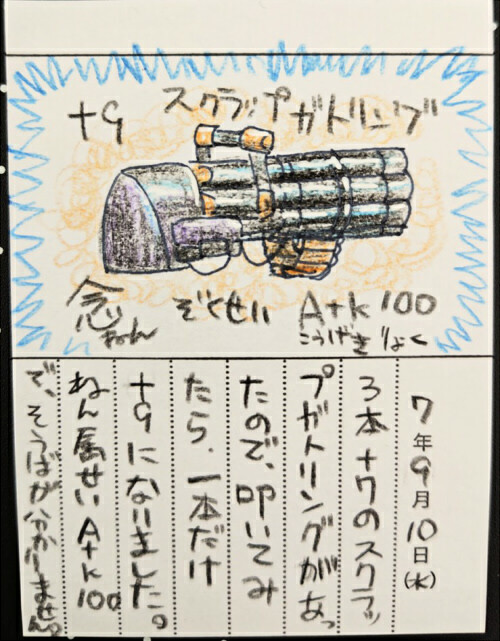 +9 スクラップガトリング
念 ねん ぞくせい Atk 100
こうげきりょく
7年9月10日(水)
3本+7のスクラッ
プガトリングがあっ
たので、叩いてみ
たら、一本だけ
+9になりました。
ねん属せいAtk100
で、そうばがわかりません。